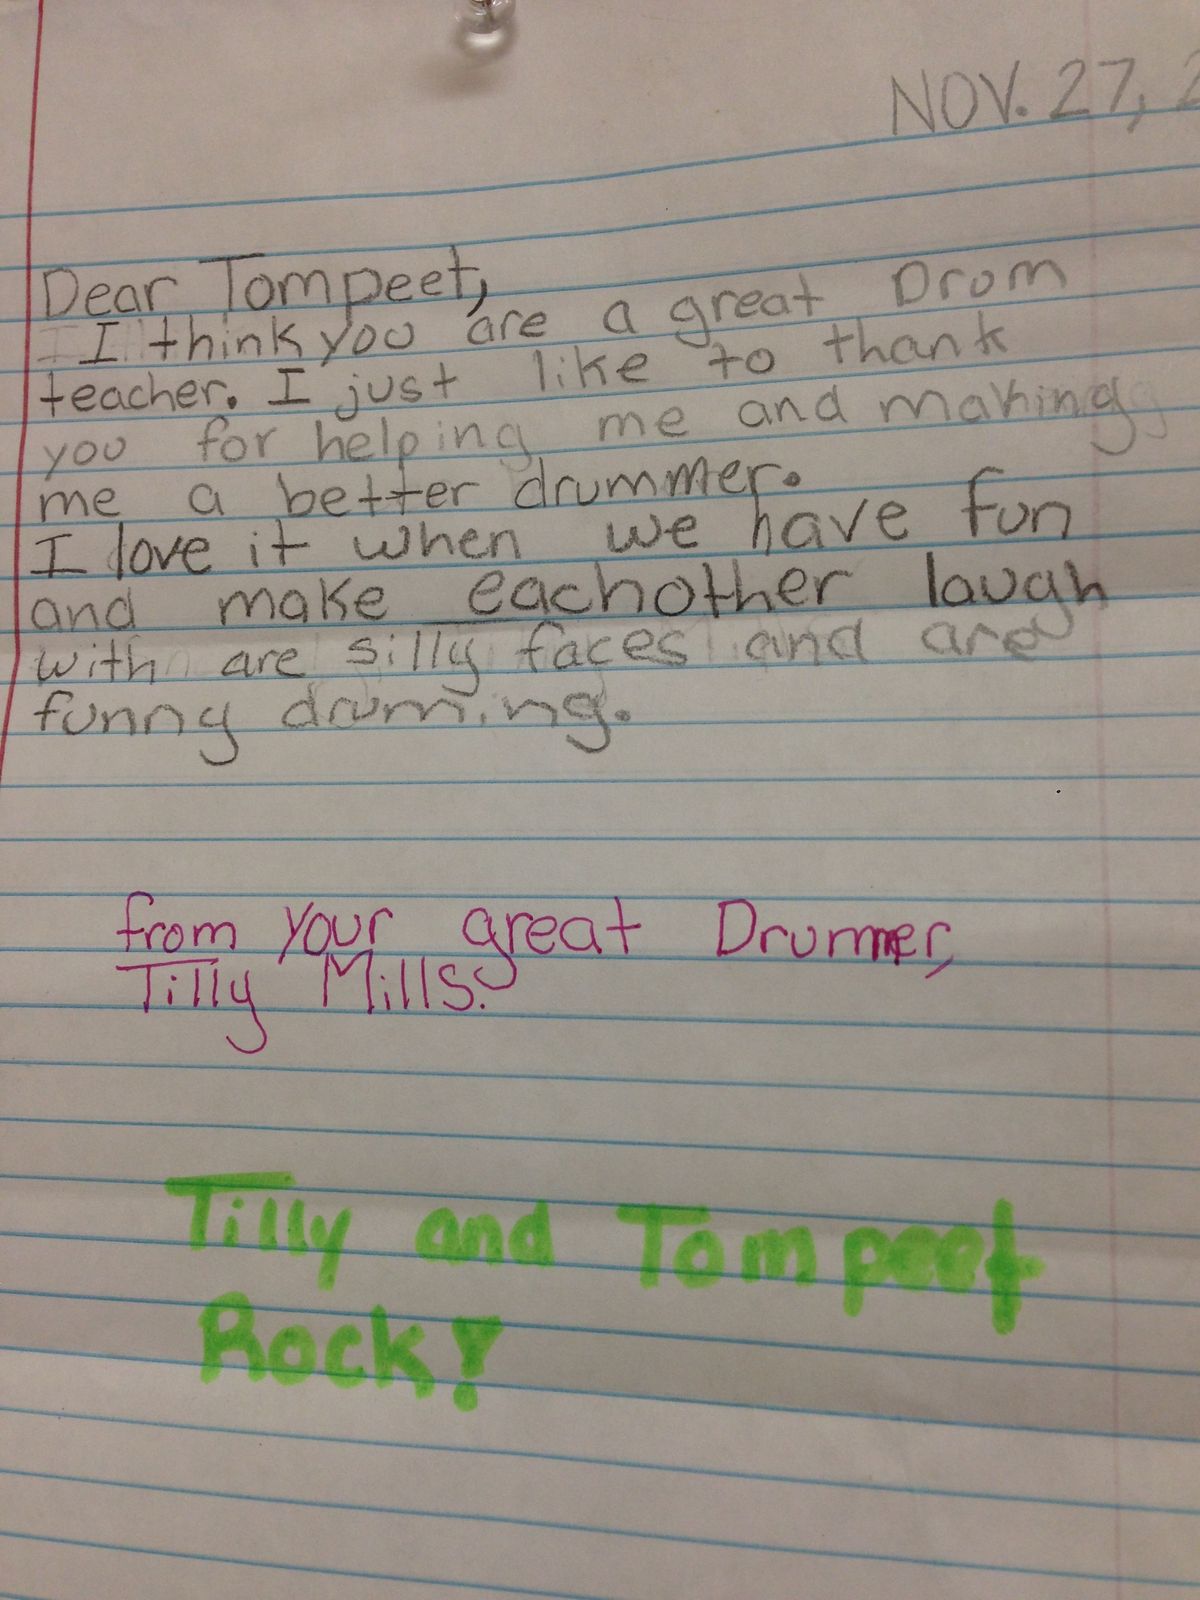 NOV. 27, 2
Dear Tompeet,
I think you are a great Drom
teacher. I just like to thank
you for helping me and making
me a better drummer.
I love it when we have fun
and make eachother laugh
with are silly faces and are
funny druming.
from your great Drummer,
Tilly Mills.
Tilly and Tompeet
Rock!